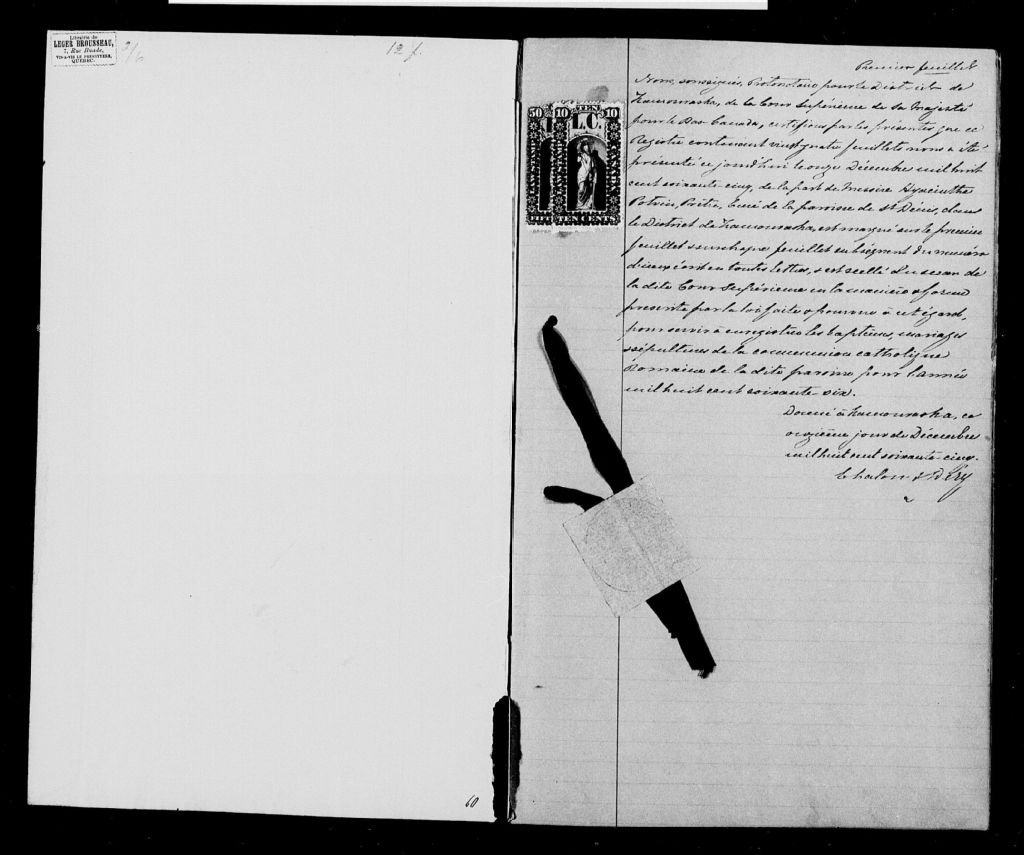 Librairie de
LEGER BROUSSEAU,
7, Rue Buade,
VIS-A-VIS LE PRESBYTERE,
QUEBEC.
2/6
12 f.
60
50
10 TEN 10
L.C.
LAW STAMP
LAW STAMP
FUND
FIF TEN CENTS
Premier feuillet
Nous, soussignés, Protonotaire pour le District de
Kamouraska, de la Cour Supérieure de Sa Majesté
pour le Bas-Canada, certifions par les présentes que ce
Registre contenant vingt quatre feuillets nous a été
présenté ce jourd'hui le onze Décembre mil huit
cent soixante-cinq, de la part de Messire Hyacinthe
Potvin, Prêtre, Curé de la paroisse de St Denis, dans
le District de Kamouraska, est marqué sur le premier
feuillet & sur chaque feuillet subséquent du numéro
d'iceux écrit en toutes lettres, & est scellé du sceau de
la dite Cour Supérieure en la manière & forme
prescrite par la loi faite & pourvue à cet égard,
pour servir à enregistrer les baptêmes, mariages
& sépultures de la communion catholique
Romaine de la dite paroisse pour l'année
mil huit cent soixante-six.
Donné à Kamouraska, ce
onzième jour de Décembre
mil huit cent soixante-cinq.